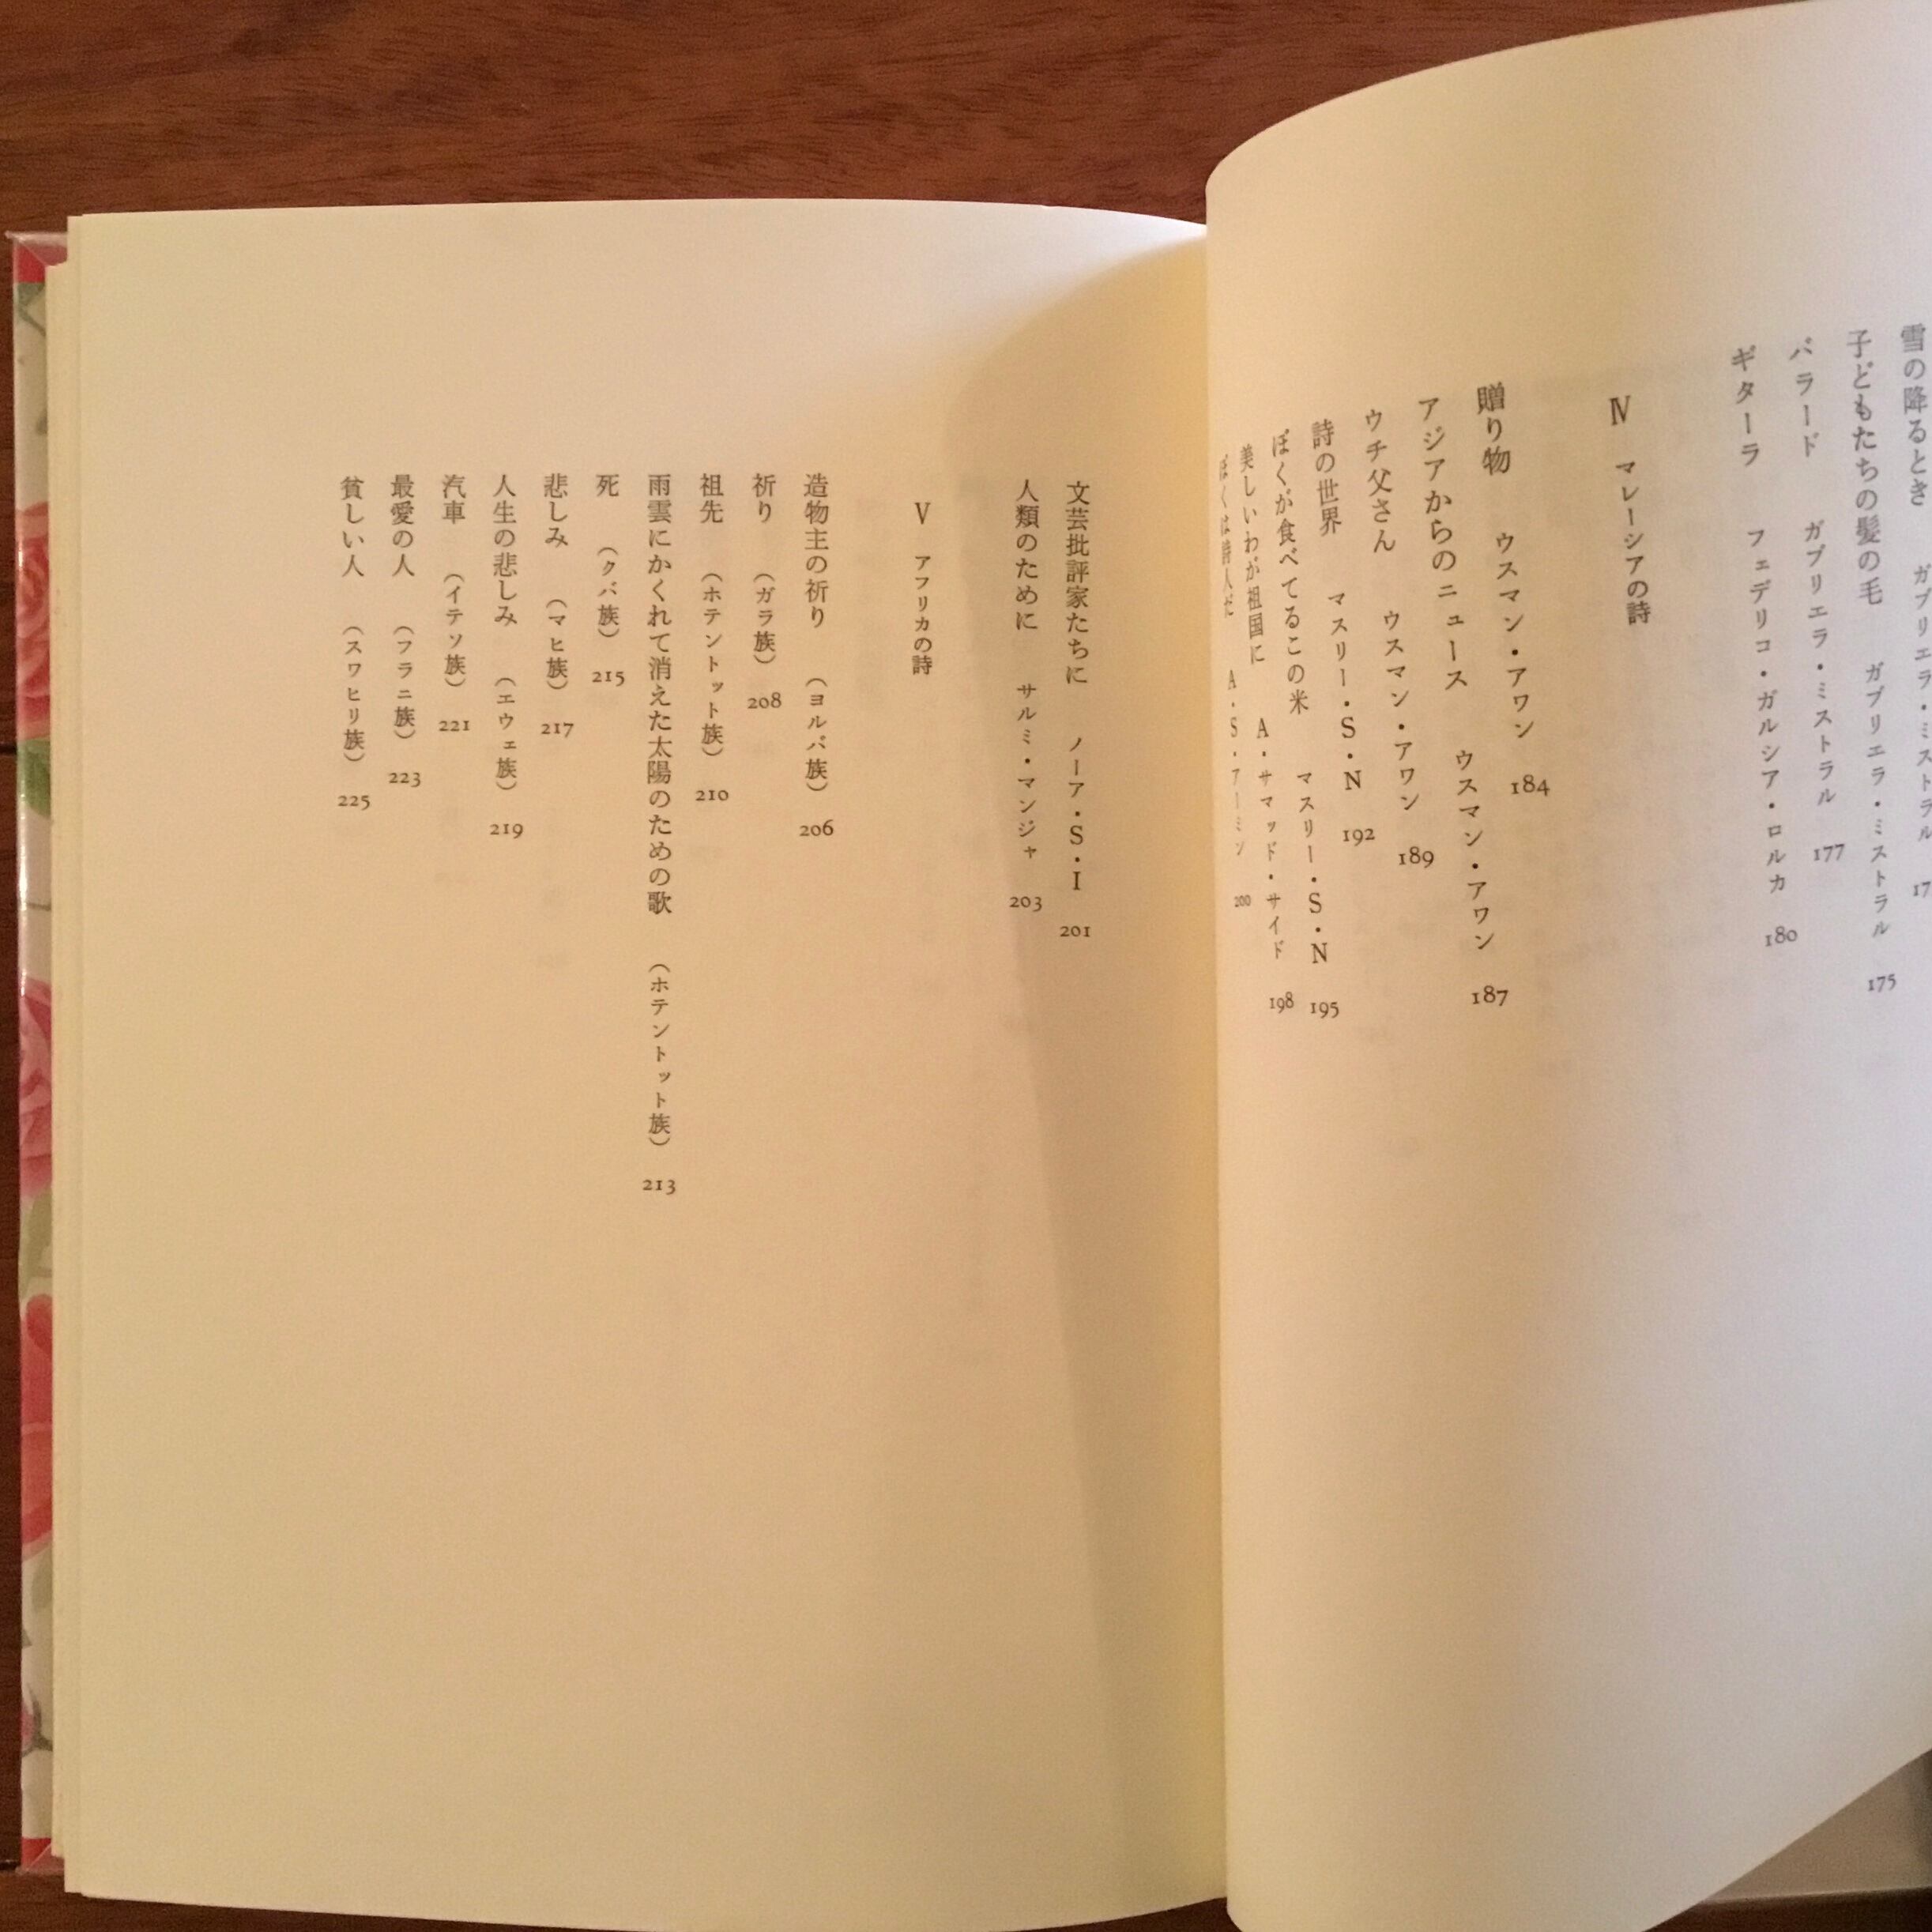 雪の降るとき ガブリエラ・ミストラル 17
子どもたちの髪の毛 ガブリエラ・ミストラル 175
バラード ガブリエラ・ミストラル 177
ギターラ フェデリコ・ガルシア・ロルカ 180
Ⅳ マレーシアの詩
贈り物 ウスマン・アワン 184
アジアからのニュース ウスマン・アワン 187
ウチ父さん ウスマン・アワン 189
詩の世界 マスリー・S・N 192
ぼくが食べてるこの米 マスリー・S・N 195
美しいわが祖国に A・サマッド・サイド 198
ぼくは詩人だ A・S・アーミン 200
文芸批評家たちに ノーア・S・I 201
人類のために サルミ・マンジャ 203
Ⅴ アフリカの詩
造物主の祈り (ヨルバ族) 206
祈り (ガラ族) 208
祖先 (ホテントット族) 210
雨雲にかくれて消えた太陽のための歌 (ホテントット族) 213
死 (クバ族) 215
悲しみ (マヒ族) 217
人生の悲しみ (エウェ族) 219
汽車 (イテソ族) 221
最愛の人 (フラニ族) 223
貧しい人 (スワヒリ族) 225